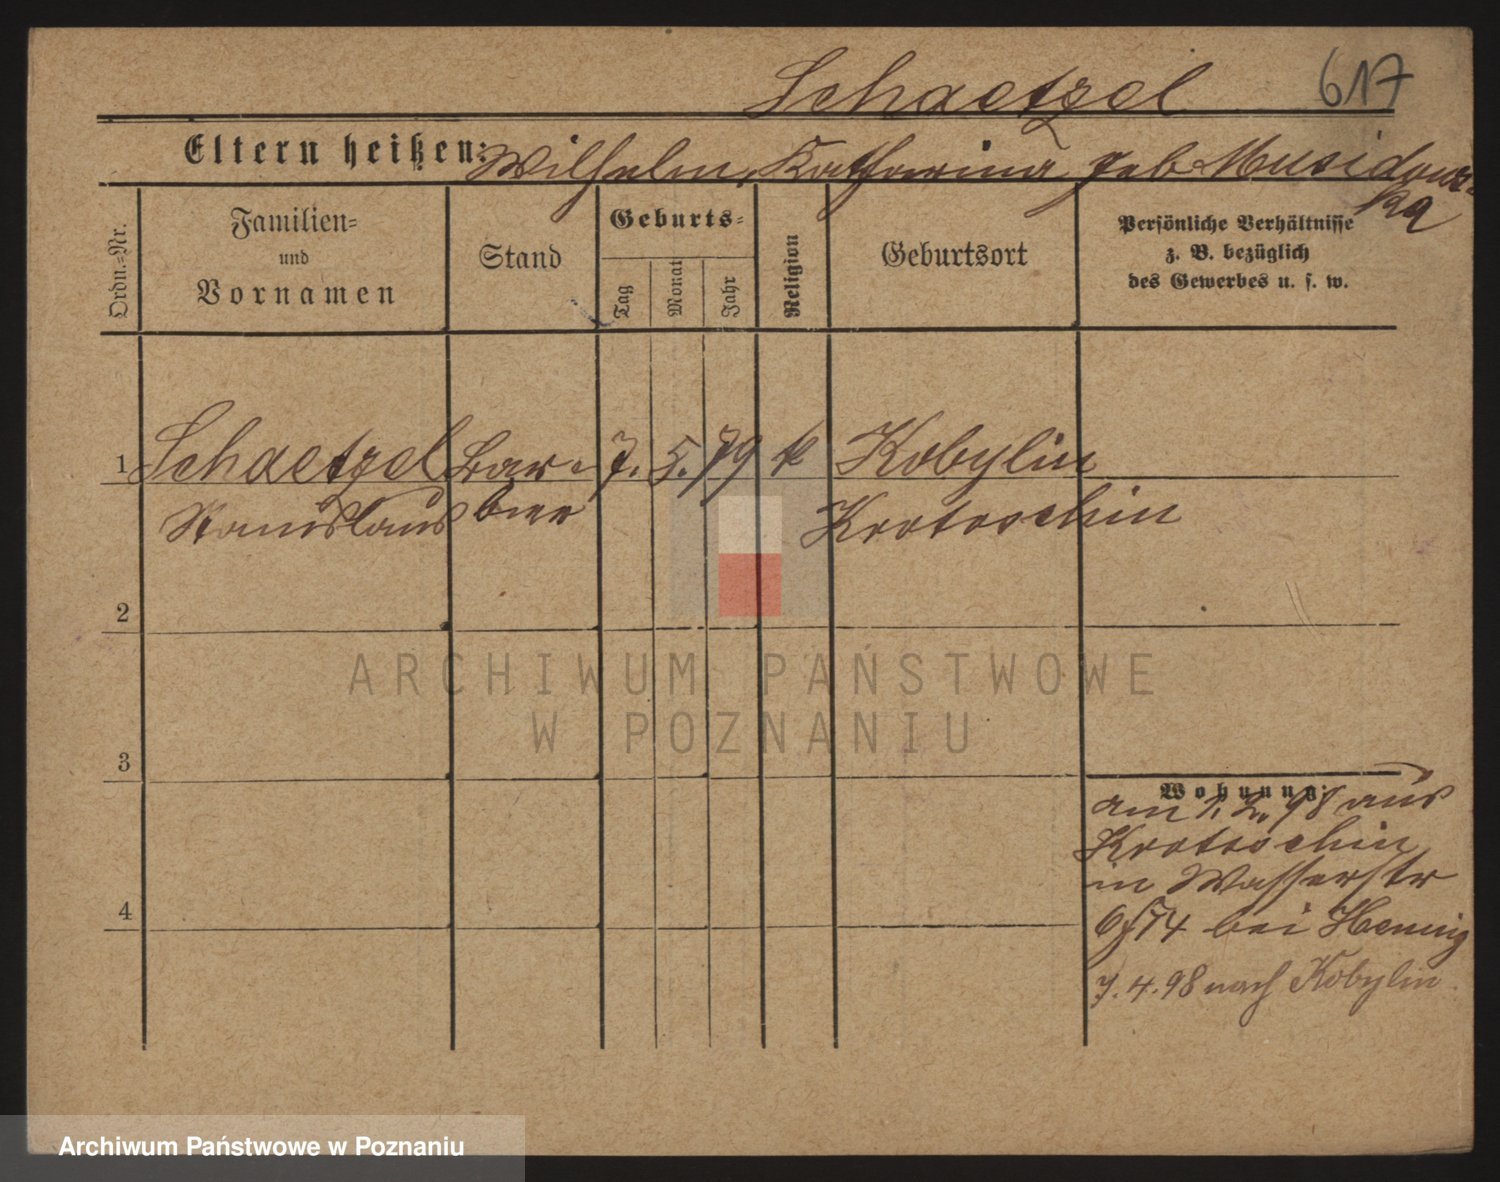 Schaetzel 617
Eltern heißen: Wilhelm, Katharina geb Musidows-
ka
Ordn.-Nr.
Familien-
und
Vornamen
Stand
Geburts-
Tag
Monat
Jahr
Religion
Geburtsort
Persönliche Verhältnisse
z. B. bezüglich
des Gewerbes u. s. w.
1 Schaetzel Bar- 7. 5. 79 k Kobylin
Stanislaus bier Krotoschin
2
3
4
Wohnung:
am 1. 2. 98 aus
Krotoschin
in Wasserstr
bei Hennig
7. 4. 98 nach Kobylin.
ARCHIWUM PAŃSTWOWE
W POZNANIU
Archiwum Państwowe w Poznaniu